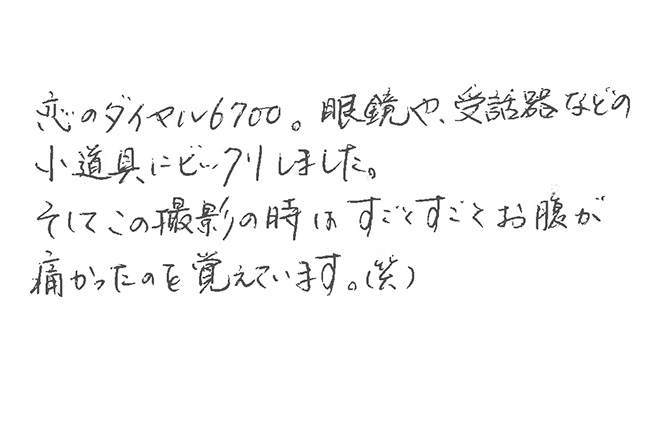 恋のダイヤル6700。眼鏡や、受話器などの
小道具にビックリしました。
そしてこの撮影の時はすごくすごくお腹が
痛かったのを覚えています。(笑)